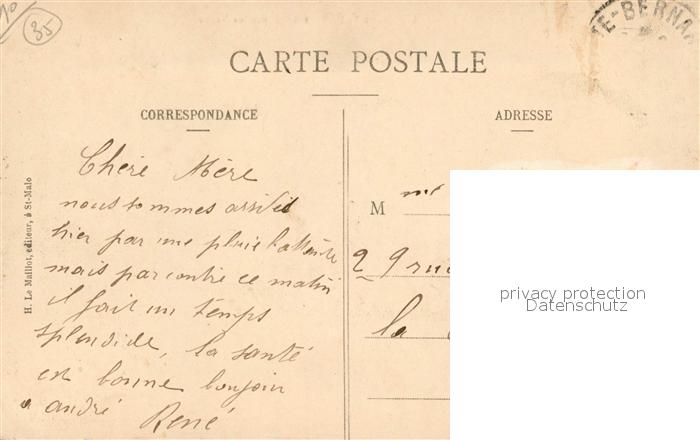 35
E-BERNA
CARTE POSTALE
CORRESPONDANCE
ADRESSE
H. Le Maillot, editeur, à St-Malo
Chère Mère
nous sommes arrivés
hier par une pluie battante
mais par contre ce matin
il fait un temps
splendide, la santé
est bonne bonjour
a andré René
M me
29 rue
la
privacy protection
Datenschutz